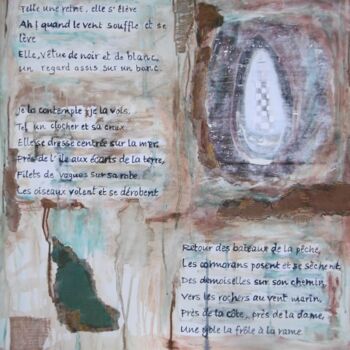 Telle une reine, elle s'élève
Ah! quand le vent souffle et se
lève
Elle, vêtue de noir et de blanc,
un regard assis sur un banc.
Je la contemple, je la vois,
Tel un clocher et sa croix
Elle se dresse centrée sur la mer,
Près de l'île aux écarts de la terre,
Filets de vagues sur sa robe
Les oiseaux volent et se dérobent
Retour des bateaux de la pêche,
Les cormorans posent et se sèchent,
Des demoiselles sur son chemin,
Vers les rochers au vent marin,
Près de la côte, près de la dame,
Une le frôle à la rame.